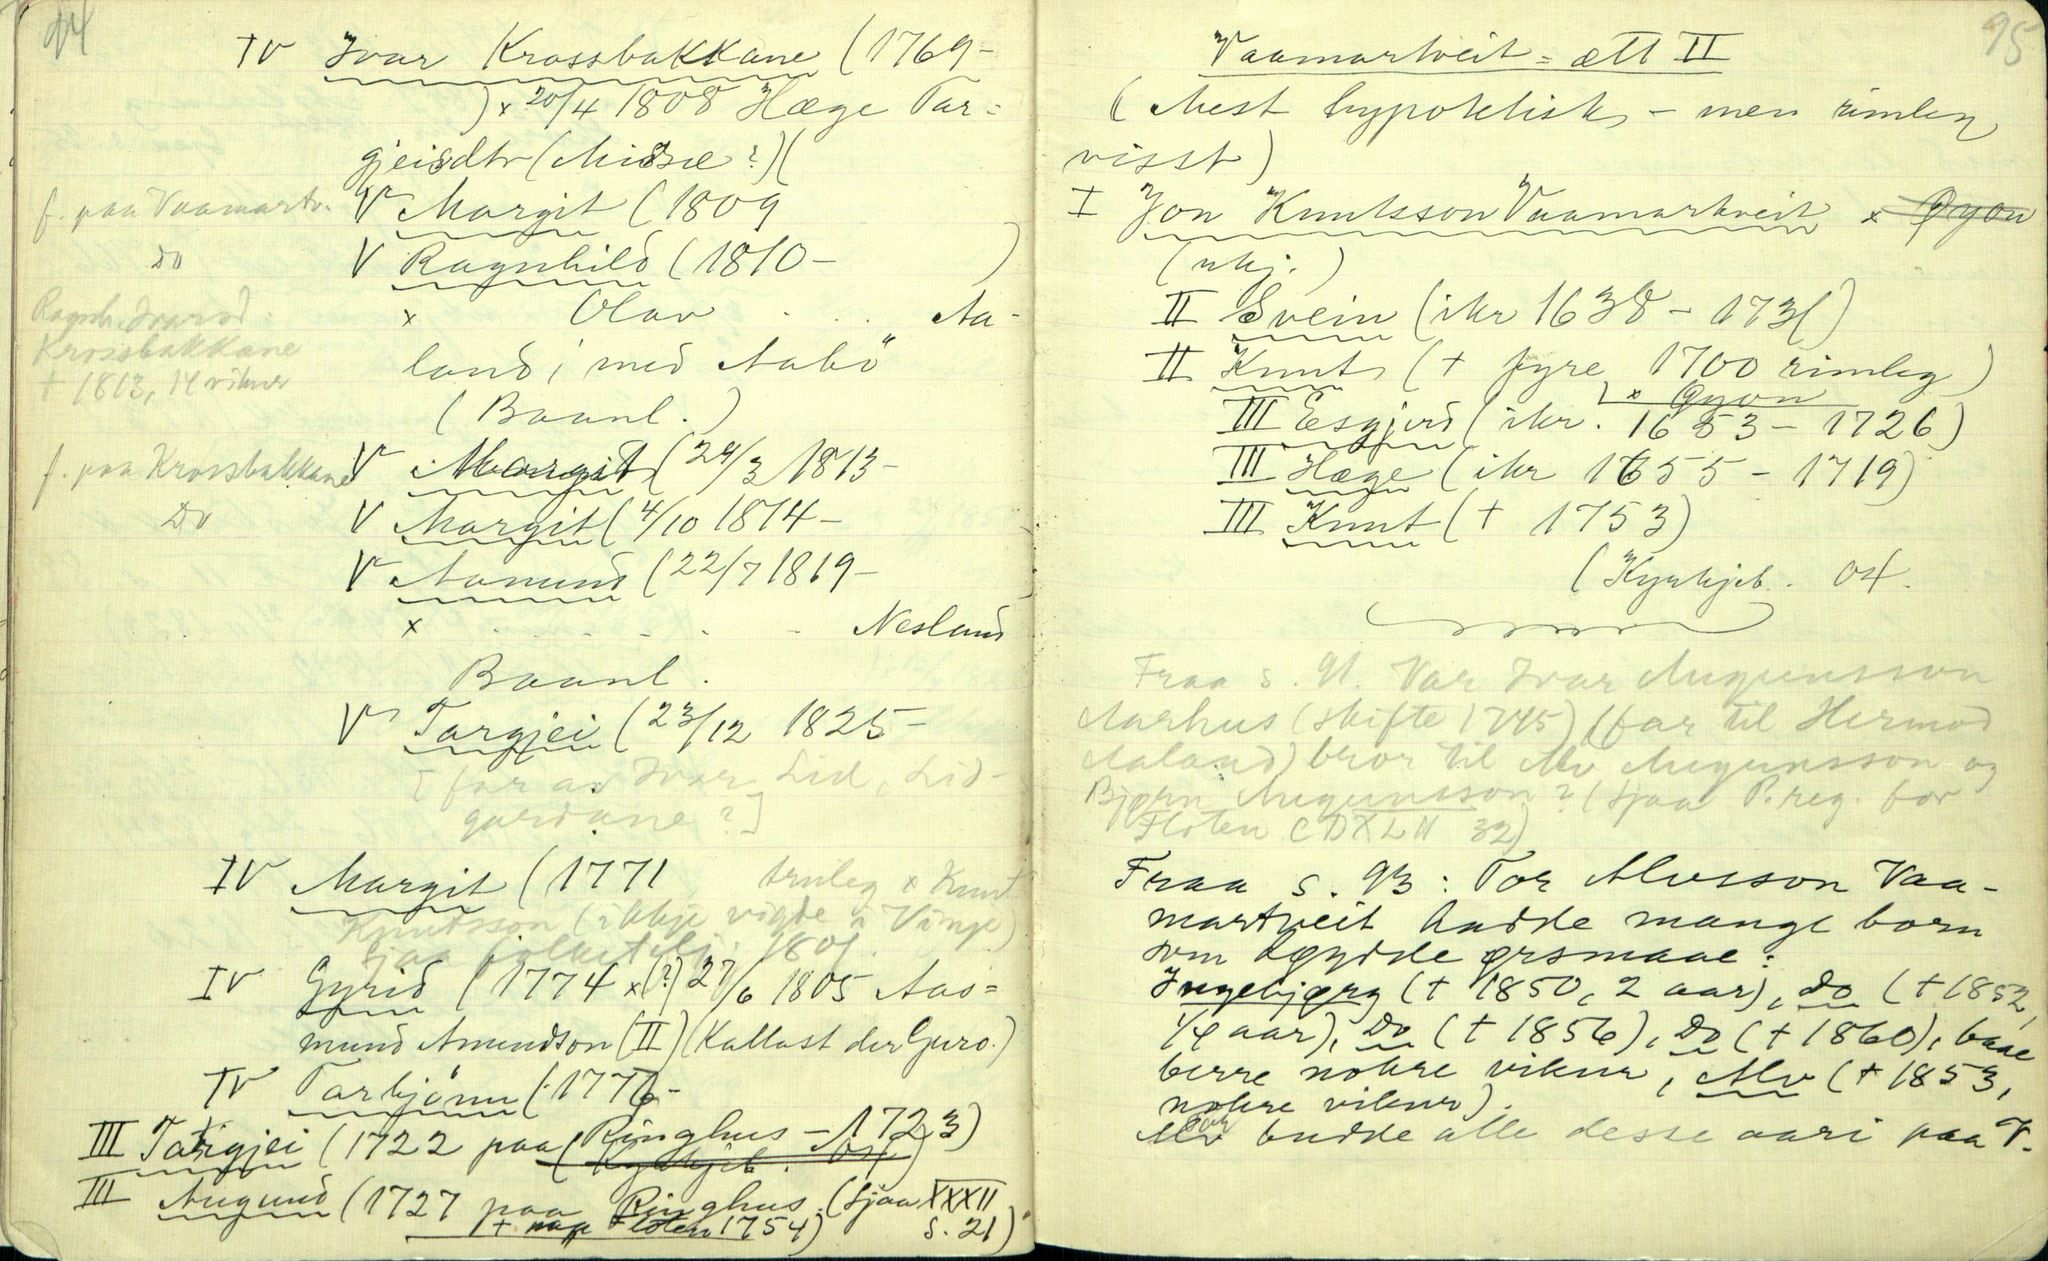 94
IV Ivar Krossbakkane (1769-
) x 20/4 1808 Hæge Tar=
gjeisdtr (Midsæ?)(
f. paa Vaamartv. V Margit (1809
Do V Ragnhild (1810- )
Ragnh. Ivarsd. x Olav . . . Aa-
Krossbakkane land i med Aabö
† 1813, 14 vikur (Baanl.)
f. paa Krossbakkane V Margit (24/3 1813-
Do V Margit (4/10 1814-
V Aamund (22/7 1819-
x . . . . . Nesland
Baanl.
V Targjei (23/12 1825-
[far av Ivar Lid, Lid-
gardane?]
IV Margit (1771 truleg x Knut
Knutsson (ikkje vigde i Vinje)
sjaa folketelj. 1801.
IV Gyrid (1774 x (?) 27/6 1805 Aas=
mund Amundson (II) (Kallast der Guro.)
IV Tarbjönn (1776-
III Targjei (1722 paa Ringhus - 1723)
(Kyrkjeb. 04)
III Augund (1727 paa Ringhus. (Sjaa XXXII
† Floten 1754) S. 21)
95
Vaamartveit = ætt II
(Mest hypotetisk, - men rimleg
visst)
I Jon Knutsson Vaamartveit x Gyon
(ukj.)
II Svein (ikr 1638 - 1731)
II Knut (+ fyre 1700 rimleg)
x Gyon
III Esgjerd (ikr. 1653 - 1726)
III Hæge (ikr 1655 - 1719)
III Knut (+ 1753)
(Kyrkjeb. 04.
Fraa s. 91. Var Ivar Augunsson
Aarhus (skifte 1745) (far til Hermod
Aaland) bror til Alv Augunsson og
Bjørn Augunsson? (sjaa P.reg. for
Floten CDXLII 32)
Fraa s. 93: Tor Alvsson Vaa-
martveit hadde mange born
som døydde ørsmaae:
Ingebjørg (+ 1850, 2 aar), Do (+ 1852,
1/4 aar), Do (+ 1856), Do (+ 1860), baae
berre nokre vikur, Alv (+ 1853,
nokre vikur).
Tor
Alv budde alle desse aari paa V.